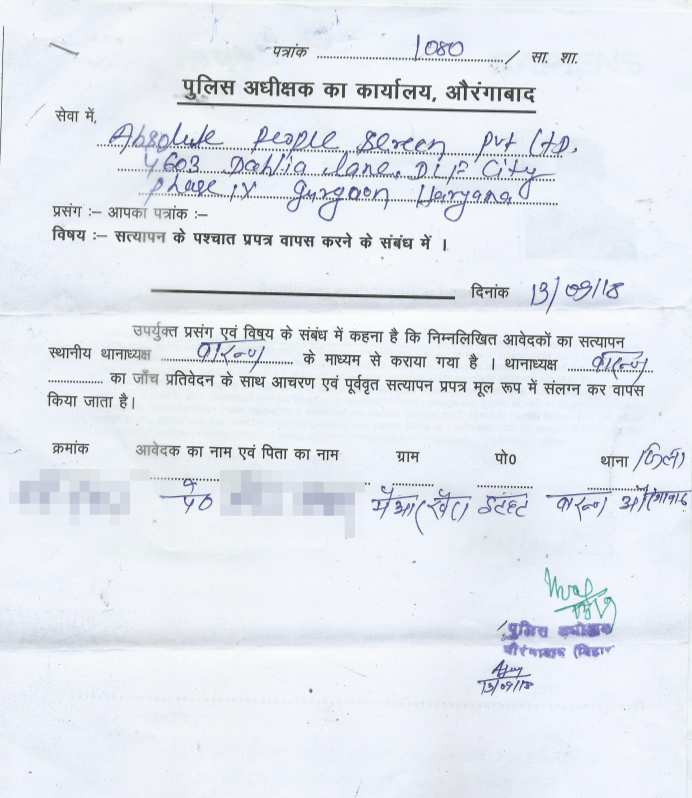 पत्रांक 1080 / सा. शा.
पुलिस अधीक्षक का कार्यालय, औरंगाबाद
सेवा में,
Absolute People Screen Pvt Ltd.
4603 Dahlia lane, DLF City
Phase IV Gurgaon Haryana
प्रसंग :– आपका पत्रांक :–
विषय :– सत्यापन के पश्चात प्रपत्र वापस करने के संबंध में ।
दिनांक 13/09/18
उपर्युक्त प्रसंग एवं विषय के संबंध में कहना है कि निम्नलिखित आवेदकों का सत्यापन
स्थानीय थानाध्यक्ष बारूण के माध्यम से कराया गया है । थानाध्यक्ष बारूण
का जाँच प्रतिवेदन के साथ आचरण एवं पूर्ववृत सत्यापन प्रपत्र मूल रूप में संलग्न कर वापस
किया जाता है।
क्रमांक आवेदक का नाम एवं पिता का नाम ग्राम पो0 थाना / जिला
पे0 बारूण औरंगाबाद
पुलिस अधीक्षक
औरंगाबाद (बिहार
13/09/18